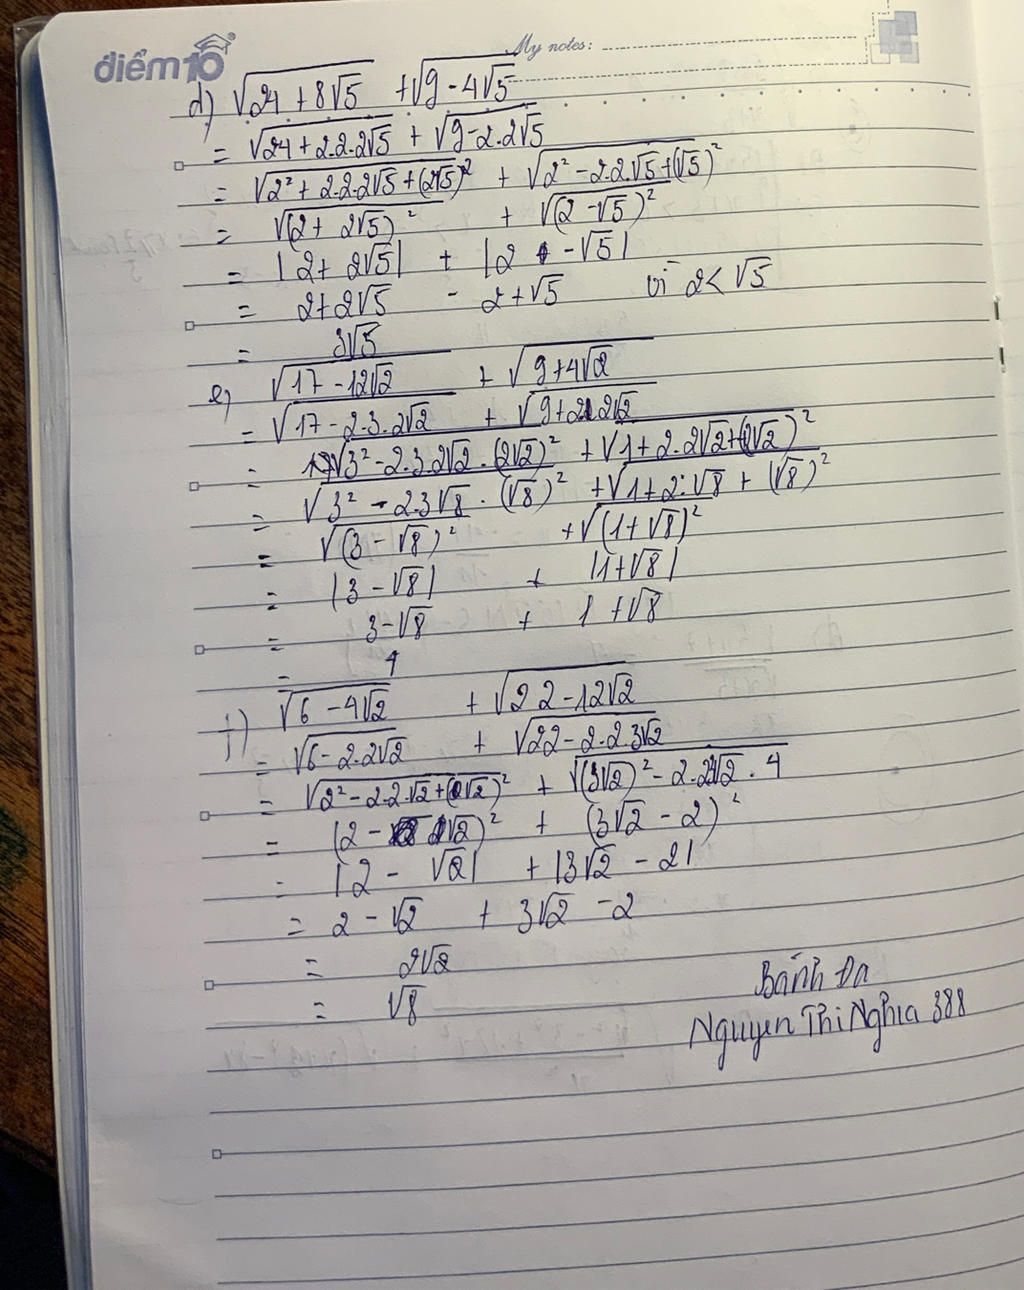 điểm10
My notes:
d) √(24 + 8√5) + √(9 - 4√5)
= √(24 + 2.2.2√5) + √(9 - 2.2√5)
= √(2² + 2.2.2√5 + (2√5)²) + √(2² - 2.2.√5 + (√5)²)
= √((2 + 2√5)²) + √((2 - √5)²)
= |2 + 2√5| + |2 - √5|
= 2 + 2√5 - 2 + √5 vì 2 < √5
= 3√5
e) √(17 - 12√2) + √(9 + 4√2)
= √(17 - 2.3.2√2) + √(9 + 2.2√2)
= √(3² - 2.3.2√2 . (2√2)²) + √(1 + 2.2√2 + (2√2)²)
= √(3² - 2.3√8 . (√8)²) + √(1 + 2.√8 + (√8)²)
= √((3 - √8)²) + √((1 + √8)²)
= |3 - √8| + |1 + √8|
= 3 - √8 + 1 + √8
= 4
f) √(6 - 4√2) + √(22 - 12√2)
= √(6 - 2.2√2) + √(22 - 2.2.3√2)
= √(2² - 2.2.√2 + (√2)²) + √((3√2)² - 2.2.3√2 . 4)
= (2 - √2)² + (3√2 - 2)²
= |2 - √2| + |3√2 - 2|
= 2 - √2 + 3√2 - 2
= 2√2
= √8
Bánh Đa
Nguyen Thi Nghia 388